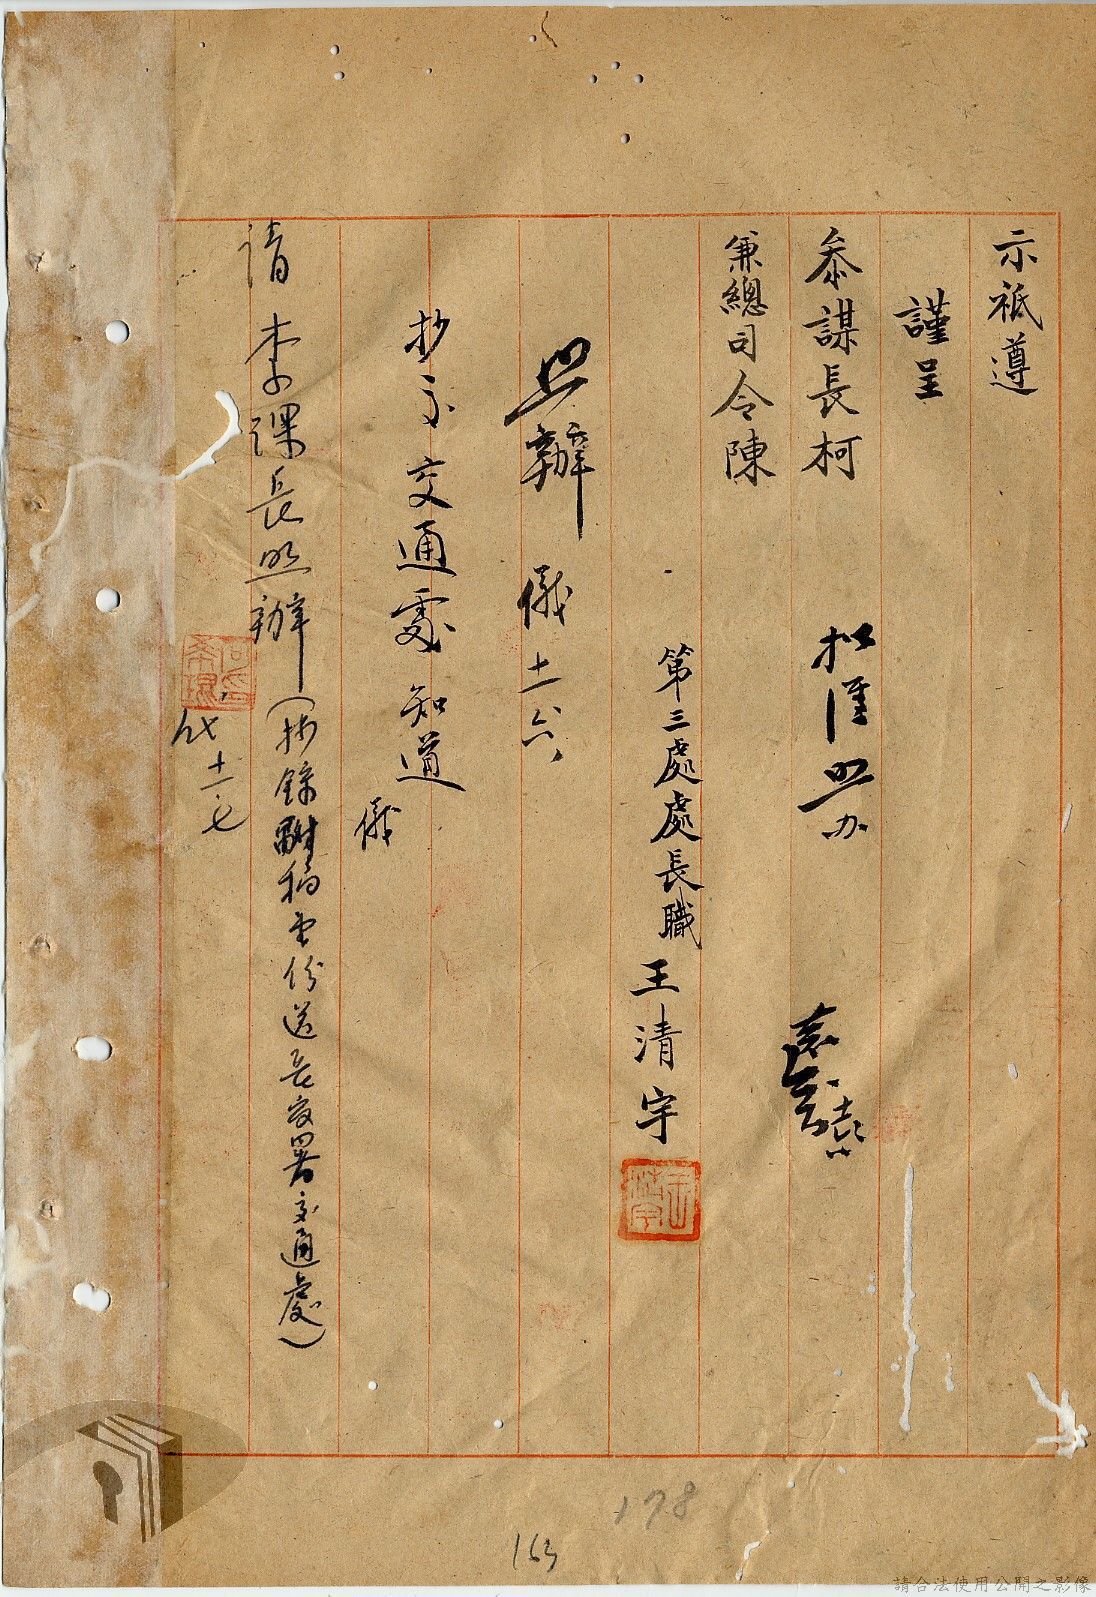 示祇遵
謹呈
參謀長柯
擬准照办
兼總司令陳
第三處處長職王清宇
照辦 儀 十一六
抄示交通處知道
儀
請李課長照辦(抄錄附稿壹份送長官署交通處)
代 十一.七
178
163
請合法使用公開之影像